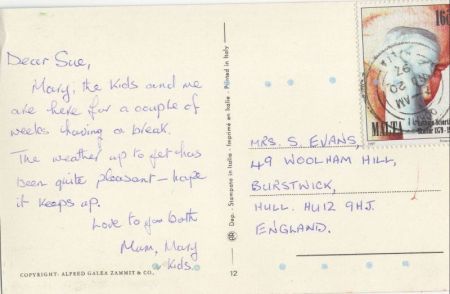 Dear Sue,
Mary, the kids and me
are here for a couple of
weeks having a break.
The weather up to yet has
been quite pleasant — hope
it keeps up.
Love to you both
Mum, Mary
& Kids.
COPYRIGHT: ALFRED GALEA ZAMMIT & CO.,
Dep. - Stampato in Italia - Imprimé en Italie - Printed in Italy
12
16c
AM
20
97
MALTA
MRS. S. EVANS,
49 WOOLHAM HILL,
BURSTWICK,
HULL. HU12 9HJ.
ENGLAND.